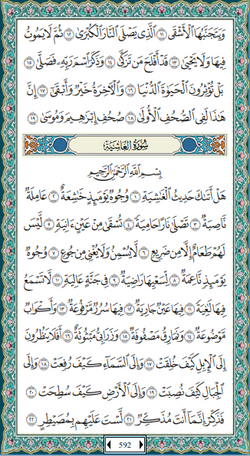 وَيَتَجَنَّبُهَا الْأَشْقَى ١١ الَّذِي يَصْلَى النَّارَ الْكُبْرَى ١٢ ثُمَّ لَا يَمُوتُ
فِيهَا وَلَا يَحْيَى ١٣ قَدْ أَفْلَحَ مَن تَزَكَّى ١٤ وَذَكَرَ اسْمَ رَبِّهِ فَصَلَّى ١٥
بَلْ تُؤْثِرُونَ الْحَيَوٰةَ الدُّنْيَا ١٦ وَالْآخِرَةُ خَيْرٌ وَأَبْقَى ١٧ إِنَّ
هَذَا لَفِي الصُّحُفِ الْأُولَى ١٨ صُحُفِ إِبْرَاهِيمَ وَمُوسَى ١٩
سُورَةُ الْغَاشِيَةِ
بِسْمِ اللَّهِ الرَّحْمَٰنِ الرَّحِيمِ
هَلْ أَتَىٰكَ حَدِيثُ الْغَٰشِيَةِ ١ وُجُوهٌ يَوْمَئِذٍ خَٰشِعَةٌ ٢ عَامِلَةٌ
نَّاصِبَةٌ ٣ تَصْلَىٰ نَارًا حَامِيَةً ٤ تُسْقَىٰ مِنْ عَيْنٍ ءَانِيَةٍ ٥ لَّيْسَ
لَهُمْ طَعَامٌ إِلَّا مِن ضَرِيعٍ ٦ لَّا يُسْمِنُ وَلَا يُغْنِي مِن جُوعٍ ٧ وُجُوهٌ
يَوْمَئِذٍ نَّاعِمَةٌ ٨ لِّسَعْيِهَا رَاضِيَةٌ ٩ فِي جَنَّةٍ عَالِيَةٍ ١٠ لَّا تَسْمَعُ
فِيهَا لَٰغِيَةً ١١ فِيهَا عَيْنٌ جَارِيَةٌ ١٢ فِيهَا سُرُرٌ مَّرْفُوعَةٌ ١٣ وَأَكْوَابٌ
مَّوْضُوعَةٌ ١٤ وَنَمَارِقُ مَصْفُوفَةٌ ١٥ وَزَرَابِيُّ مَبْثُوثَةٌ ١٦ أَفَلَا يَنظُرُونَ
إِلَى الْإِبِلِ كَيْفَ خُلِقَتْ ١٧ وَإِلَى السَّمَاءِ كَيْفَ رُفِعَتْ ١٨ وَإِلَى
الْجِبَالِ كَيْفَ نُصِبَتْ ١٩ وَإِلَى الْأَرْضِ كَيْفَ سُطِحَتْ ٢٠
فَذَكِّرْ إِنَّمَا أَنتَ مُذَكِّرٌ ٢١ لَّسْتَ عَلَيْهِم بِمُصَيْطِرٍ ٢٢
592